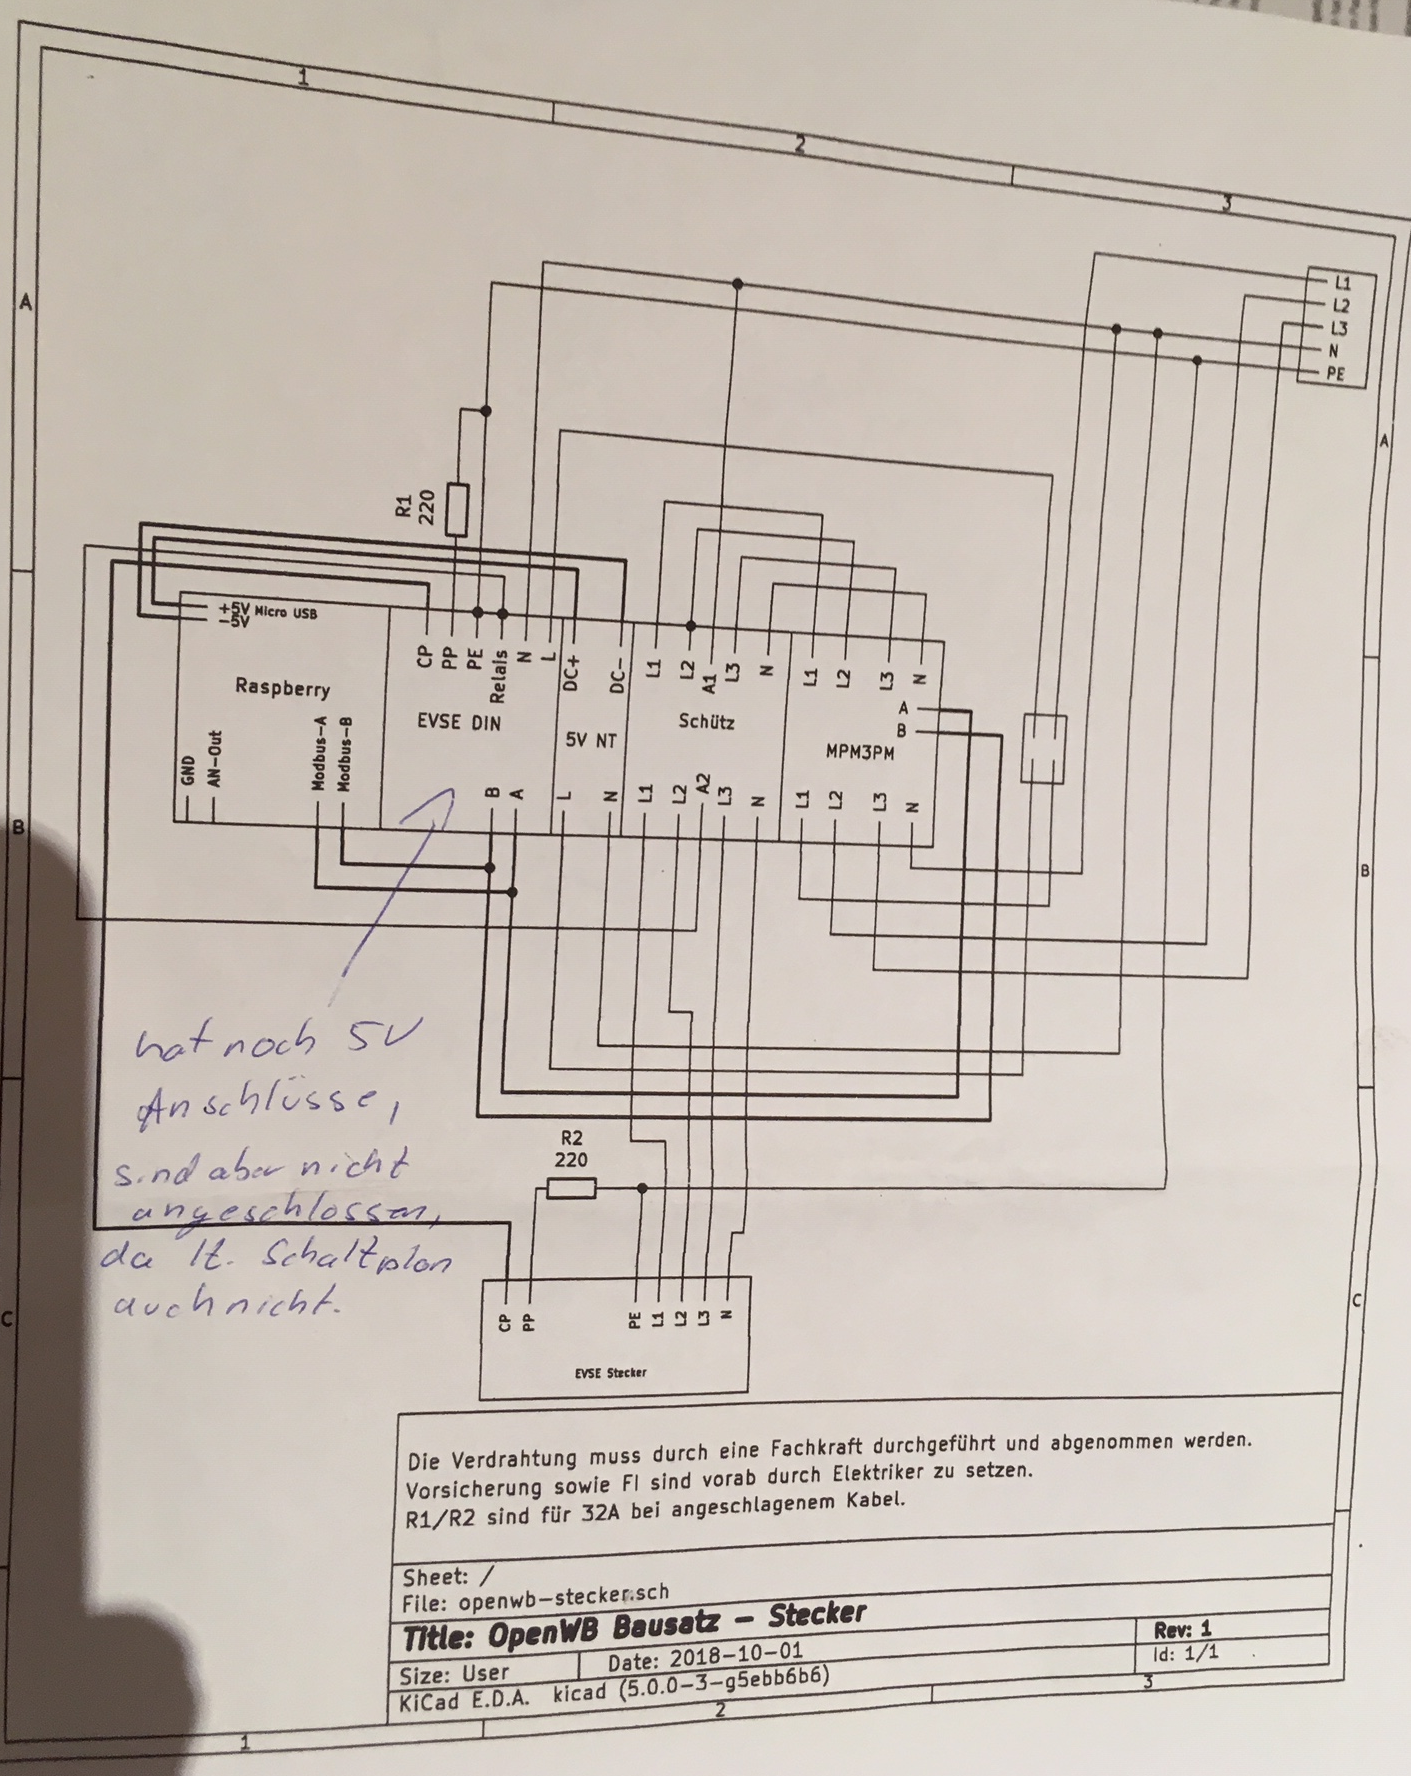 1
2
3
A
A
L1
L2
L3
N
PE
R1
220
+5V Micro USB
-5V
Raspberry
GND
AN-Out
Modbus-A
Modbus-B
CP
PP
PE
Relais
N
L
EVSE DIN
B
A
DC+
DC-
5V NT
L
N
L1
L2
A1
L3
N
Schütz
L1
L2
A2
L3
N
L1
L2
L3
N
A
B
MPM3PM
L1
L2
L3
N
B
B
hat noch 5V
Anschlüsse,
sind aber nicht
angeschlossen,
da lt. Schaltplan
auch nicht.
R2
220
CP
PP
PE
L1
L2
L3
N
EVSE Stecker
C
C
Die Verdrahtung muss durch eine Fachkraft durchgeführt und abgenommen werden.
Vorsicherung sowie FI sind vorab durch Elektriker zu setzen.
R1/R2 sind für 32A bei angeschlagenem Kabel.
Sheet: /
File: openwb-stecker.sch
Title: OpenWB Bausatz - Stecker
Size: User Date: 2018-10-01 Rev: 1
KiCad E.D.A. kicad (5.0.0-3-g5ebb6b6) Id: 1/1
1
2
3